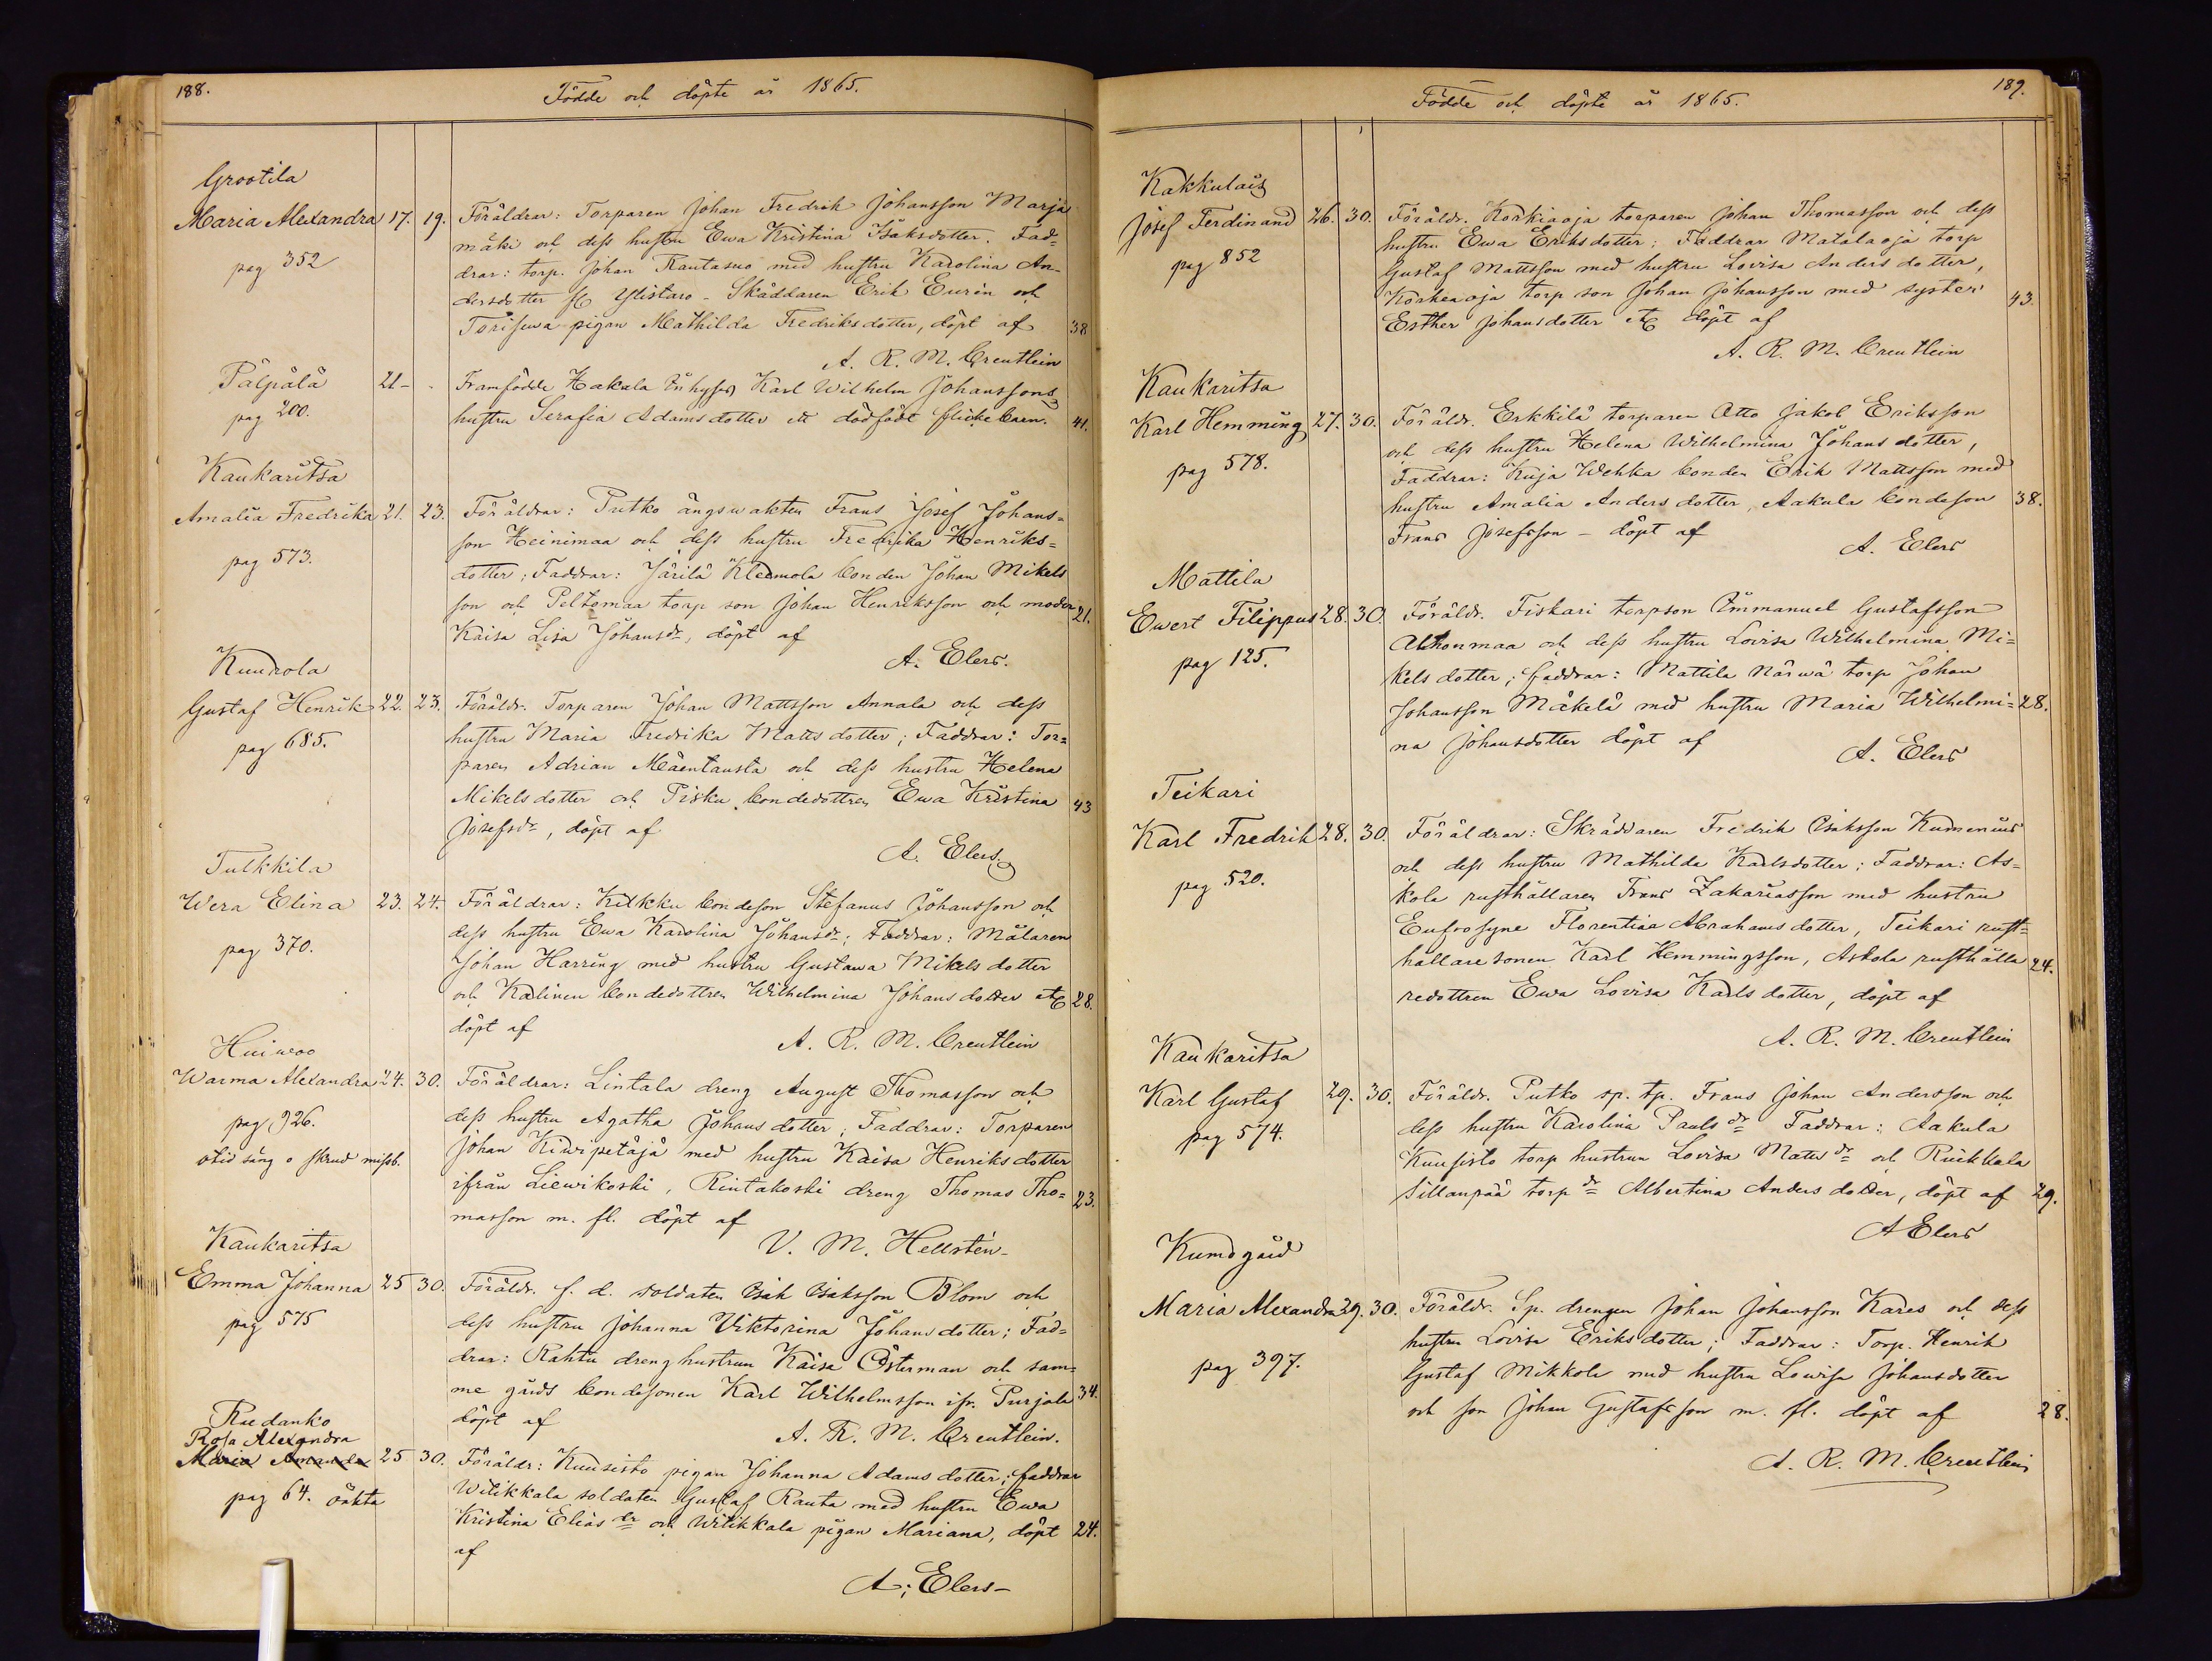 188.
Födde och döpte år 1865.
Grootila
Maria Alexandra 17. 19. Föräldrar: Torparen Johan Fredrik Johansson Marja
mäki och dess hustru Ewa Kristina Isaksdotter. Fad=
pag 352
drar: torp. Johan Rautasuo med hustru Karolina An-
dersdotter fr Ylistaro - Skäddaren Erik Eurén och
pigan Mathilda Fredriksdotter, döpt af 38
A. R. M. Creutlein
Pälpälä 21 - - Framfödde Hakala Inhyses Karl Wilhelm Johanssons
pag 200.
hustru Serafia Adamsdotter ett dödfödt flickebarn. 41.
Kaukaritsa
Amalia Fredrika 21. 23. Föräldrar: Putko ängswakten Frans Josef Johans=
son Heinimaa och dess hustru Fredrika Henriks=
pag 573.
dotter; Faddrar: Järilä Klemola bonden Johan Mikels
son och Peltomaa torp son Johan Henriksson och moder 21.
Kaisa Lisa Johansdr, döpt af
A. Elers.
Kuurola
Gustaf Henrik 22. 23. Föräldr. Torparen Johan Mattsson Annala och dess
pag 685.
hustru Maria Fredrika Mattsdotter; Faddrar: Tor=
paren Adrian Mäentausta och dess hustru Helena
Mikelsdotter och Pisku bondedottren Ewa Kristina 43
Josefsdr, döpt af
A. Elers.
Tulkkila
Wera Elina 23. 24. Föräldrar: Kilkku bondeson Stefanus Johansson och
dess hustru Ewa Karolina Johansdr; Faddrar: Målaren
pag 370.
Johan Harring med hustru Gustawa Mikelsdotter
och Kalinen bondedottren Wilhelmina Johansdotter etc 28.
döpt af
A. R. M. Creutlein
Huiwoo
Warma Alexandra 24. 30. Föräldrar: Lintala dreng August Thomasson och
pag 926.
dess hustru Agatha Johansdotter; Faddrar: Torparen
otid säng o skrud missb.
Johan Kiwipetäjä med hustru Kaisa Henriksdotter
ifrån Liewikoski, Rintakoski dreng Thomas Tho= 23.
masson m. fl. döpt af
V. M. Hellstén-
Kaukaritsa
Emma Johanna 25 30. Föräldr. f. d. soldaten Isak Isaksson Blom och
pag 575
dess hustru Johanna Viktorina Johansdotter; Fad=
drar: Rahtu drenghustrun Kaisa Österman och sam=
me gårds bondesonen Karl Wilhelmsson ifr. Purjala 34.
döpt af
A. R. M. Creutlein.
Ruedanko
Rosa Alexandra
Maria Amanda 25 30. Föräldr: Kuusisto pigan Johanna Adamsdotter; faddrar
pag 64. oäkta
Witikkala soldaten Gustaf Rauta med hustru Ewa
Kristina Eliasdr och Witikkala pigan Mariana, döpt 24.
af
A. Elers-
189.
Födde och döpte år 1865.
Kakkulais
Josef Ferdinand 26. 30. Föräldr. Korkiaoja torparen Johan Thomasson och dess
hustru Ewa Eriksdotter; Faddrar Matalaoja torp
pag 852
Gustaf Mattsson med hustru Lovisa Andersdotter,
Korkeaoja torp son Johan Johansson med syster 43.
Esther Johansdotter etc döpt af
A. R. M. Creutlein
Kaukaritsa
Karl Hemming 27. 30. Föräldr. Erkkilä torparen Otto Jakob Eriksson
och dess hustru Helena Wilhelmina Johansdotter,
pag 578.
Faddrar: Kuja Wehka bonden Erik Mattsson med
hustru Amalia Andersdotter, Aakula bondeson 38.
Frans Josefsson - döpt af
A. Elers
Mattila
Ewert Filippus 28. 30. Föräldr. Fiskari torpson Immanuel Gustafsson
Ahonmaa och dess hustru Lovisa Wilhelmina Mi=
pag 125.
kelsdotter; faddrar: Mattila Närwä torp Johan
Johansson Mäkelä med hustru Maria Wilhelmi= 28.
na Johansdotter döpt af
A. Elers
Teikari
Karl Fredrik 28. 30. Föräldrar: Skräddaren Fredrik Isaksson Kumenius
och dess hustru Mathilda Karlsdotter; Faddrar: As=
pag 520.
kola rusthållaren Frans Zakariasson med hustru
Eufrosyne Florentina Abrahamsdotter, Teikari rust=
hållaresonen Karl Hemmingsson, Askola rusthålla 24.
redottren Ewa Lovisa Karlsdotter, döpt af
A. R. M. Creutlein
Kaukaritsa
Karl Gustaf 29. 30. Föräldr. Putko sp. tp. Frans Johan Andersson och
pag 574.
dess hustru Karolina Paulsdr Faddrar: Aakula
Kuusisto torp hustrun Lovisa Mattsdr och Ruikkala
Sillanpää torp dr Albertina Andersdotter, döpt af 29.
A Elers
Kumogård
Maria Alexandra 29. 30. Föräldr. Sp. drengen Johan Johansson Kares och dess
hustru Lovisa Eriksdotter; Faddrar: Torp. Henrik
pag 397.
Gustaf Mikkola med hustru Lowisa Johansdotter
och son Johan Gustafsson m. fl. döpt af 28.
A. R. M. Creutlein